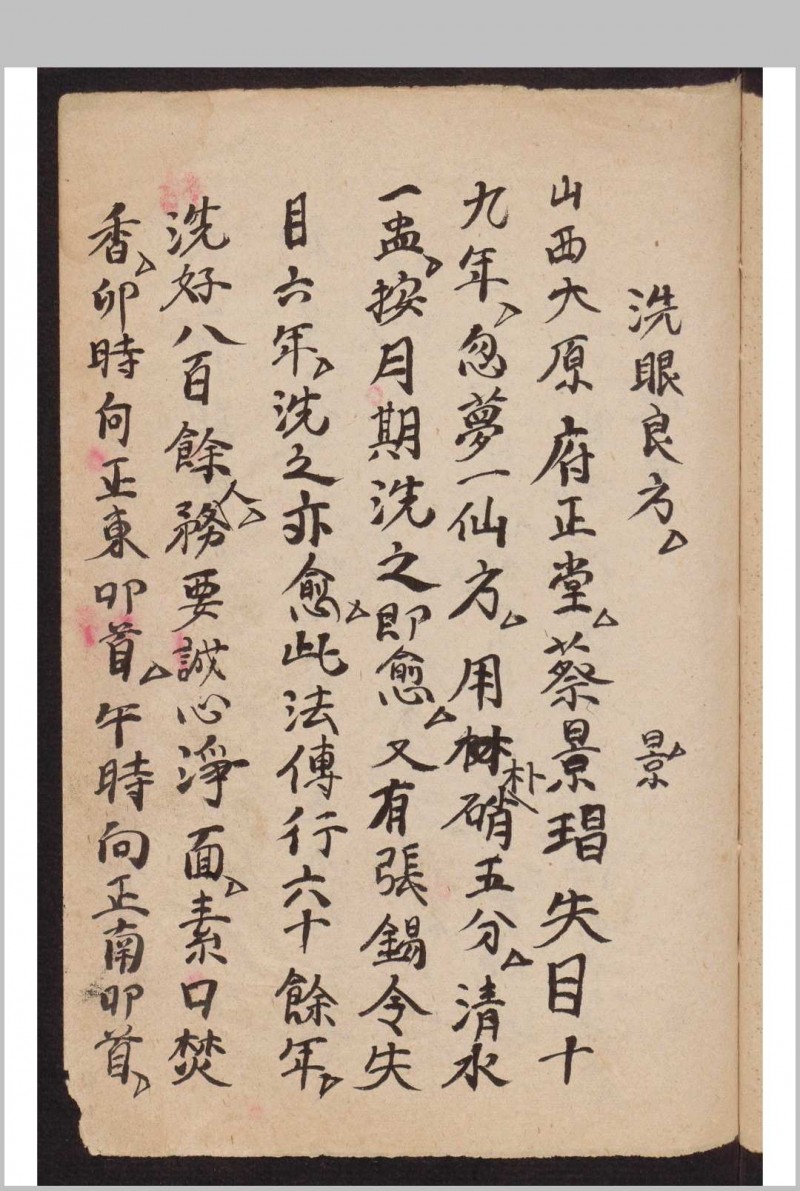 洗眼良方 景
山西大原府正堂蔡景瑁失目十
九年忽夢一仙方用朴硝五分清水
一盅按月期洗之即愈又有張錫令失
目六年洗之亦愈此法傳行六十餘年
洗好八百餘人務要誠心淨面素口焚
香卯時向正東叩首午時向正南叩首